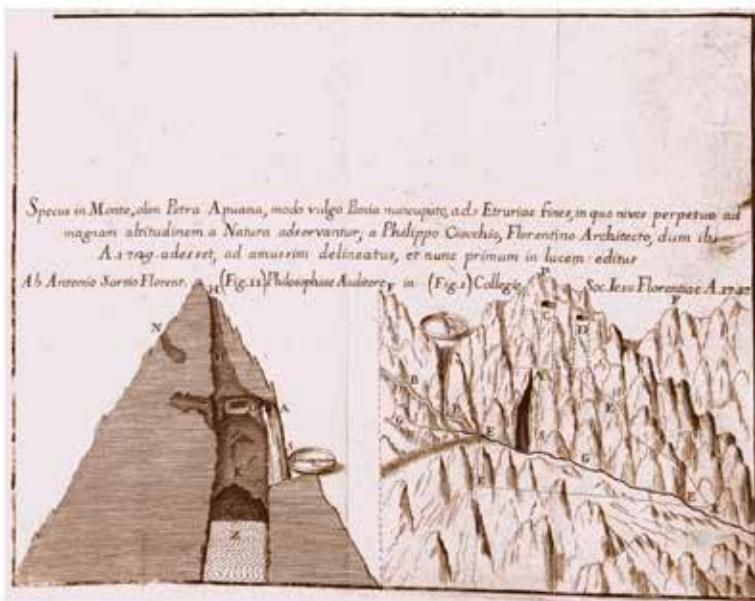 Specus in Monte, olim Petra Apuana, modo vulgo Pania nuncupato, ad Etruriae fines, in quo nives perpetuo ad
magnam altitudinem a Natura adservantur, a Philippo Ciocchio, Florentino Architecto, dum ibi
A. 1719. adesset, ad amussim delineatus, et nunc primum in lucem editus
Ab Antonio Sartio Florent. (Fig. II) Philosophiae Auditore in (Fig. I) Collegio Soc. Iesu Florentiae A. 17
H P F
N C D
A
B
D E
G
E S G
Z